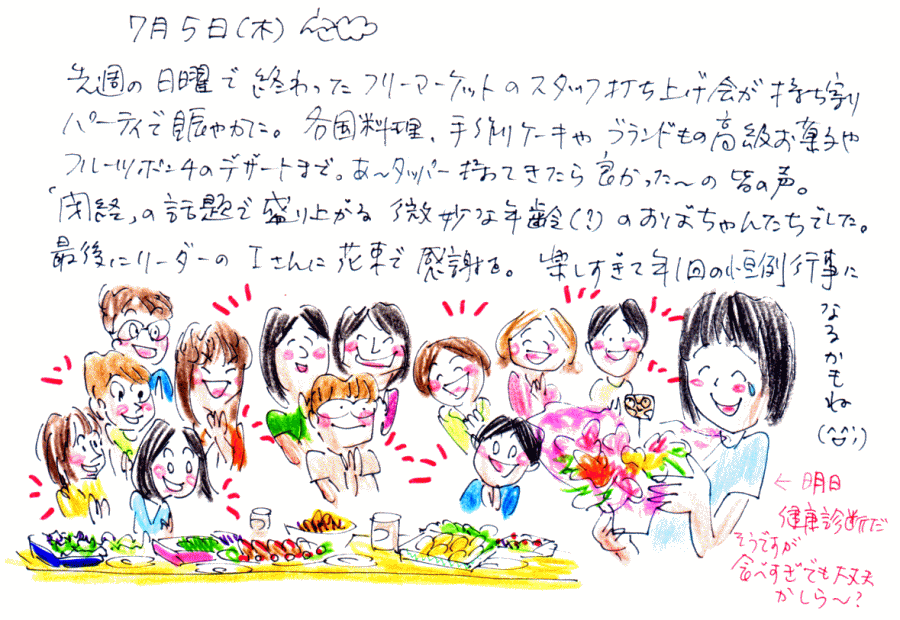 7月5日(木)
先週の日曜で終わったフリーマーケットのスタッフ打ち上げ会が持ち寄り
パーティで賑やかに。各国料理、手作りケーキやブランドもの高級お菓子や
フルーツポンチのデザートまで。あ〜タッパー持ってきたら良かった〜の皆の声。
「閉経」の話題で盛り上がる微妙な年齢(?)のおばちゃんたちでした。
最後にリーダーのIさんに花束で感謝を。楽しすぎて年1回の恒例行事に
なるかもね(^^;)
← 明日
健康診断だ
そうですが
食べすぎでも大丈夫
かしら〜?